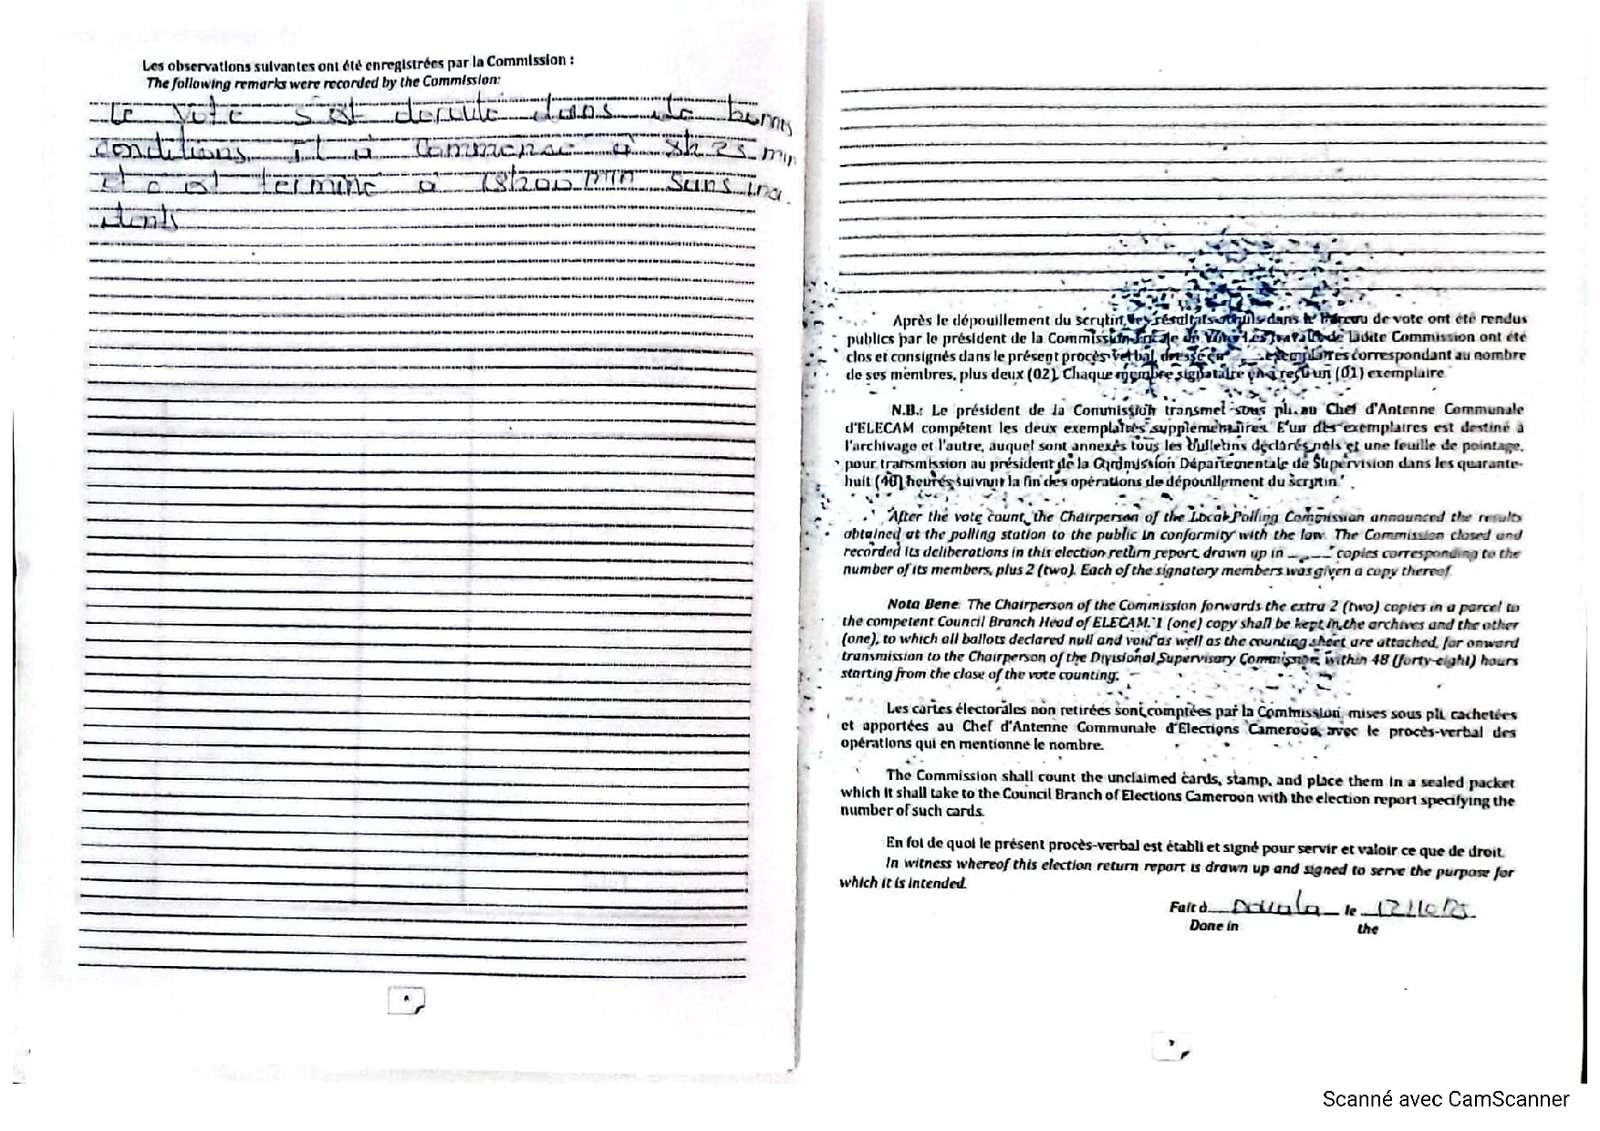 Les observations suivantes ont été enregistrées par la Commission :
The following remarks were recorded by the Commission:
Le vote s'est déroulé dans de bonnes
conditions. Il a commencé à 8h 25 min
et c'est terminé à 18h00 min sans inci-
dents
Après le dépouillement du scrutin, les résultats dans le bureau de vote ont été rendus
publics par le président de la Commission Locale de Vote. Les travaux de ladite Commission ont été
clos et consignés dans le présent procès-verbal, dressé en exemplaires correspondant au nombre
de ses membres, plus deux (02). Chaque membre signataire en a reçu un (01) exemplaire.
N.B.: Le président de la Commission transmet sous pli au Chef d'Antenne Communale
d'ELECAM compétent les deux exemplaires supplémentaires. L'un des exemplaires est destiné à
l'archivage et l'autre, auquel sont annexés tous les bulletins déclarés nuls et une feuille de pointage,
pour transmission au président de la Commission Départementale de Supervision dans les quarante-
huit (48) heures suivant la fin des opérations de dépouillement du Scrutin.
After the vote count, the Chairperson of the Local Polling Commission announced the results
obtained at the polling station to the public in conformity with the law. The Commission closed and
recorded its deliberations in this election return report, drawn up in ____ copies corresponding to the
number of its members, plus 2 (two). Each of the signatory members was given a copy thereof.
Nota Bene: The Chairperson of the Commission forwards the extra 2 (two) copies in a parcel to
the competent Council Branch Head of ELECAM. 1 (one) copy shall be kept in the archives and the other
(one), to which all ballots declared null and void as well as the counting sheet are attached, for onward
transmission to the Chairperson of the Divisional Supervisory Commission, within 48 (forty-eight) hours
starting from the close of the vote counting.
Les cartes électorales non retirées sont comptées par la Commission, mises sous pli, cachetées
et apportées au Chef d'Antenne Communale d'Elections Cameroon, avec le procès-verbal des
opérations qui en mentionne le nombre.
The Commission shall count the unclaimed cards, stamp, and place them in a sealed packet
which it shall take to the Council Branch of Elections Cameroon with the election report specifying the
number of such cards.
En foi de quoi le présent procès-verbal est établi et signé pour servir et valoir ce que de droit.
In witness whereof this election return report is drawn up and signed to serve the purpose for
which it is intended.
Fait à Douala le 12/10/25
Done in the
Scanné avec CamScanner